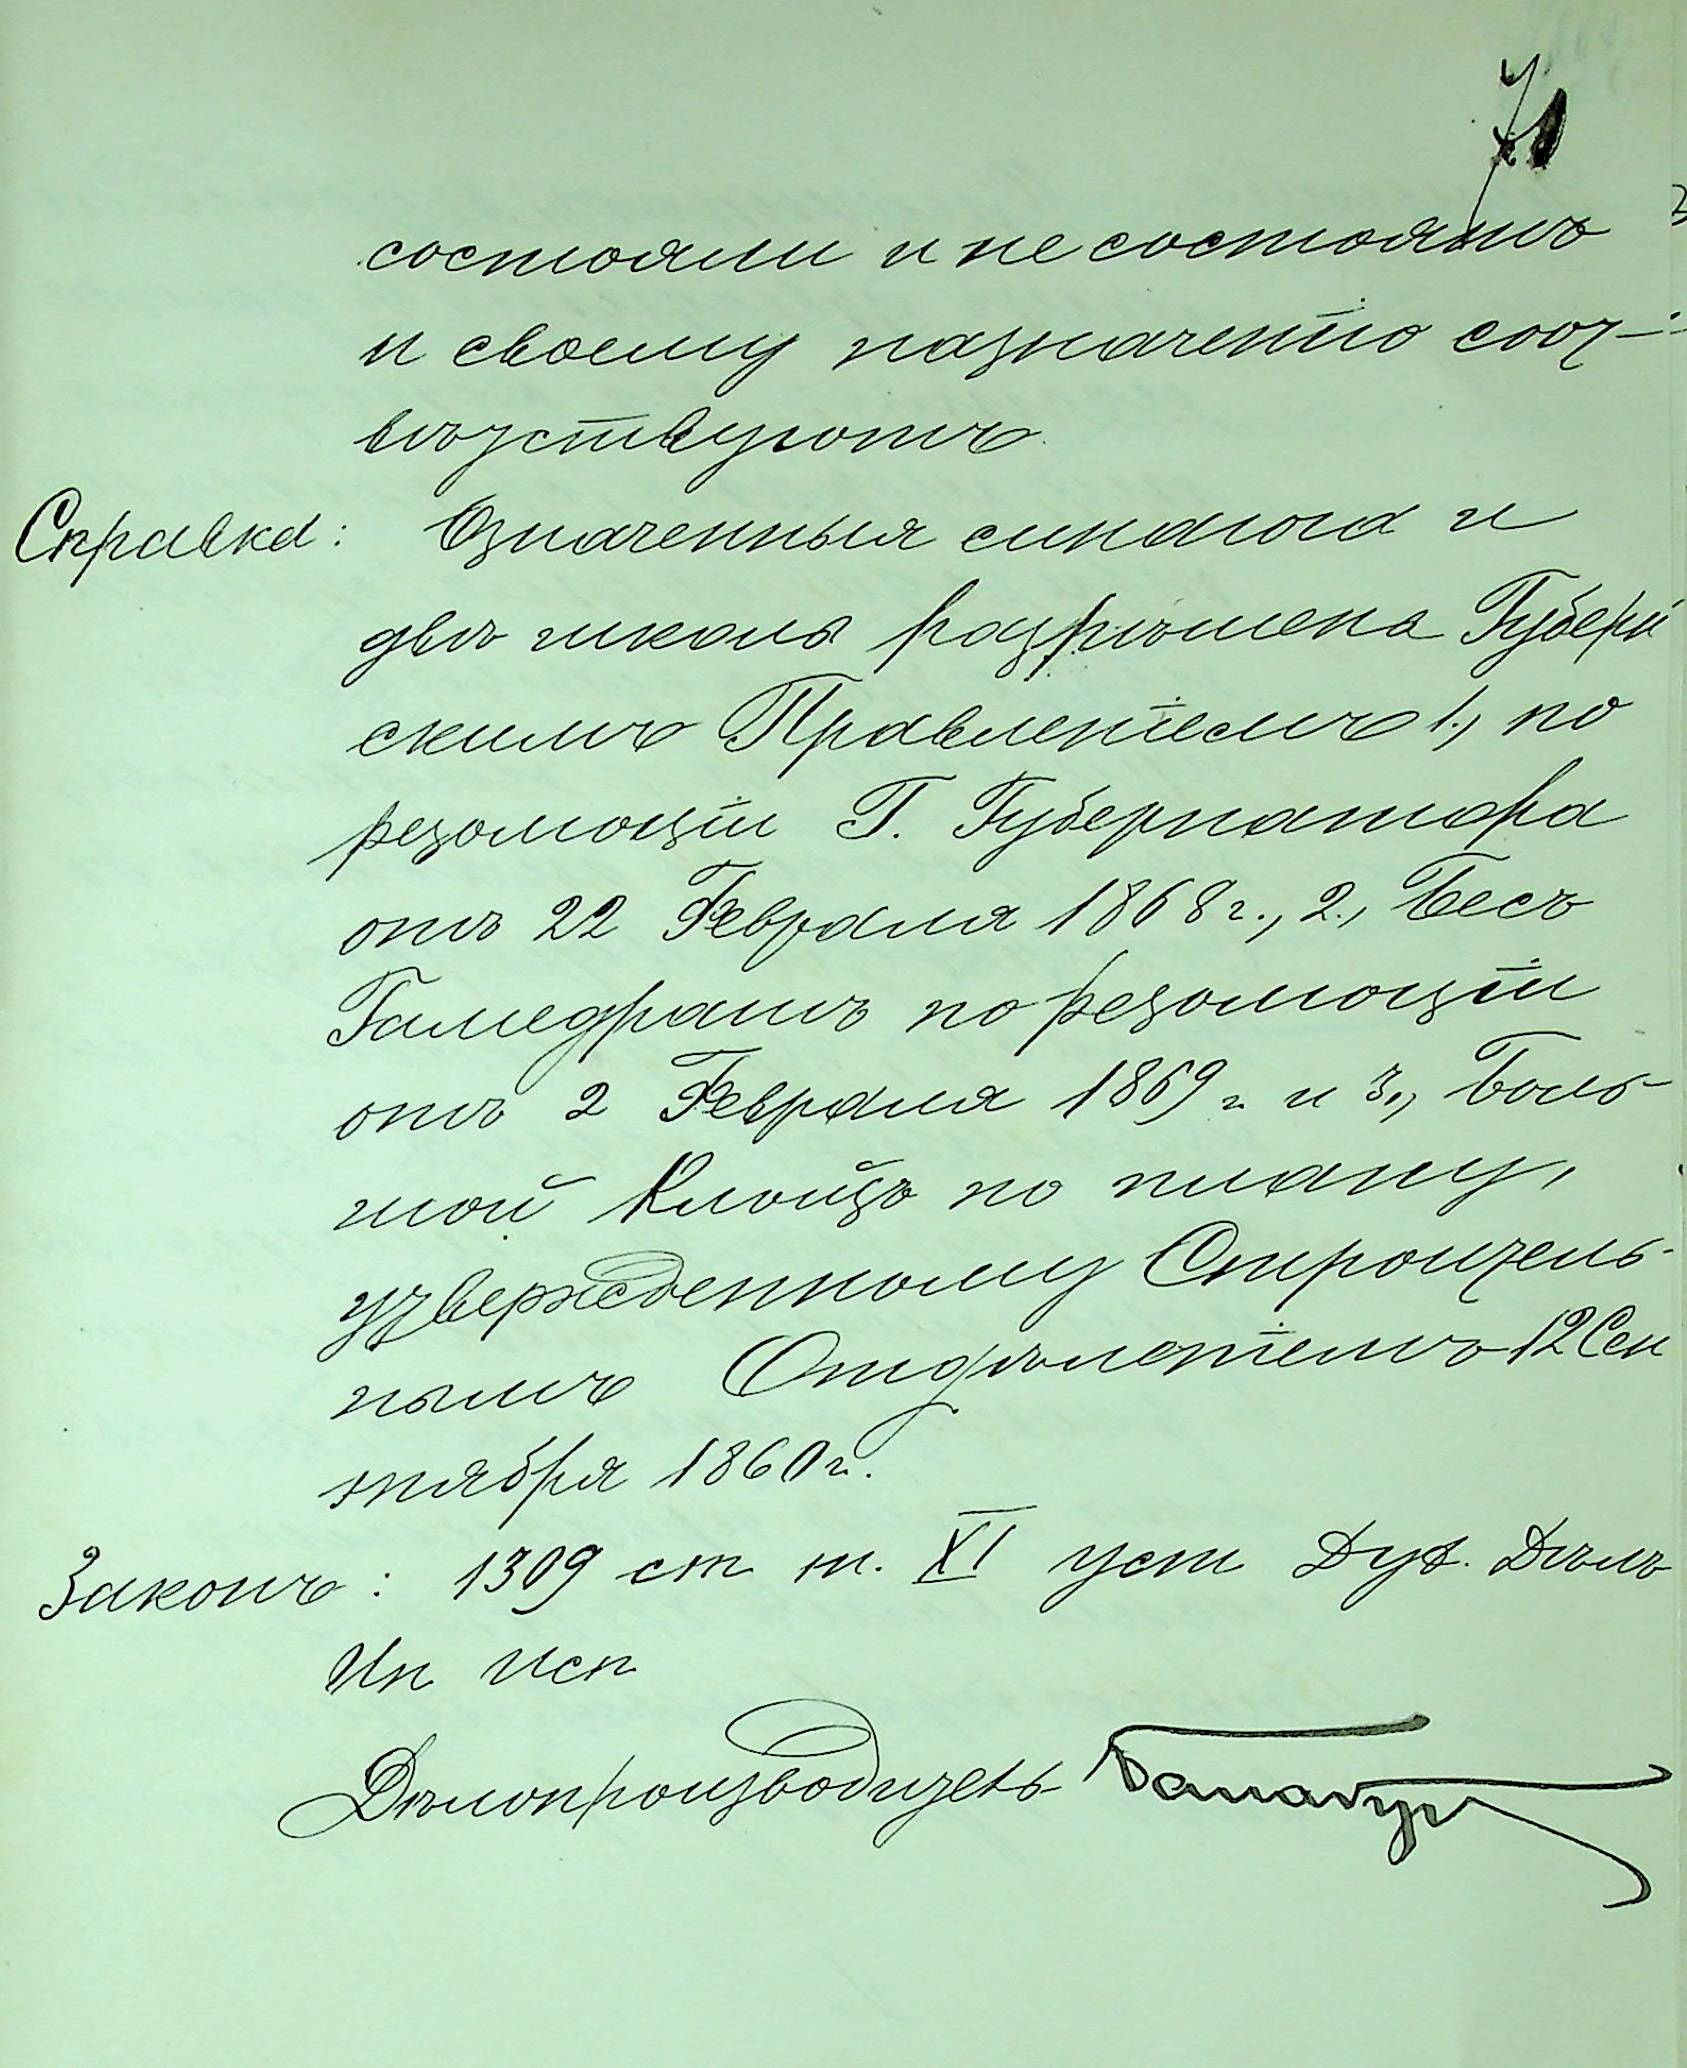 70
состояли и не состоятъ
и своему назначенію соот-
вѣтствуютъ.
Справка: Означенныя синагога и
двѣ школы разрѣшена Губерн
скимъ Правленіемъ 1., по
резолюціи Г. Губернатора
отъ 22 Февраля 1868 г., 2., Бесъ
Гамедрашъ по резолюціи
отъ 2 Февраля 1869 г. и 3., Боль
шой Клойзъ по плану,
утвержденному Строитель-
нымъ Отдѣленіемъ 12 Сен
тября 1860 г.
Законъ: 1309 ст т. XI уст Дух. Дѣлъ
Ин Исп
Дѣлопроизводитель